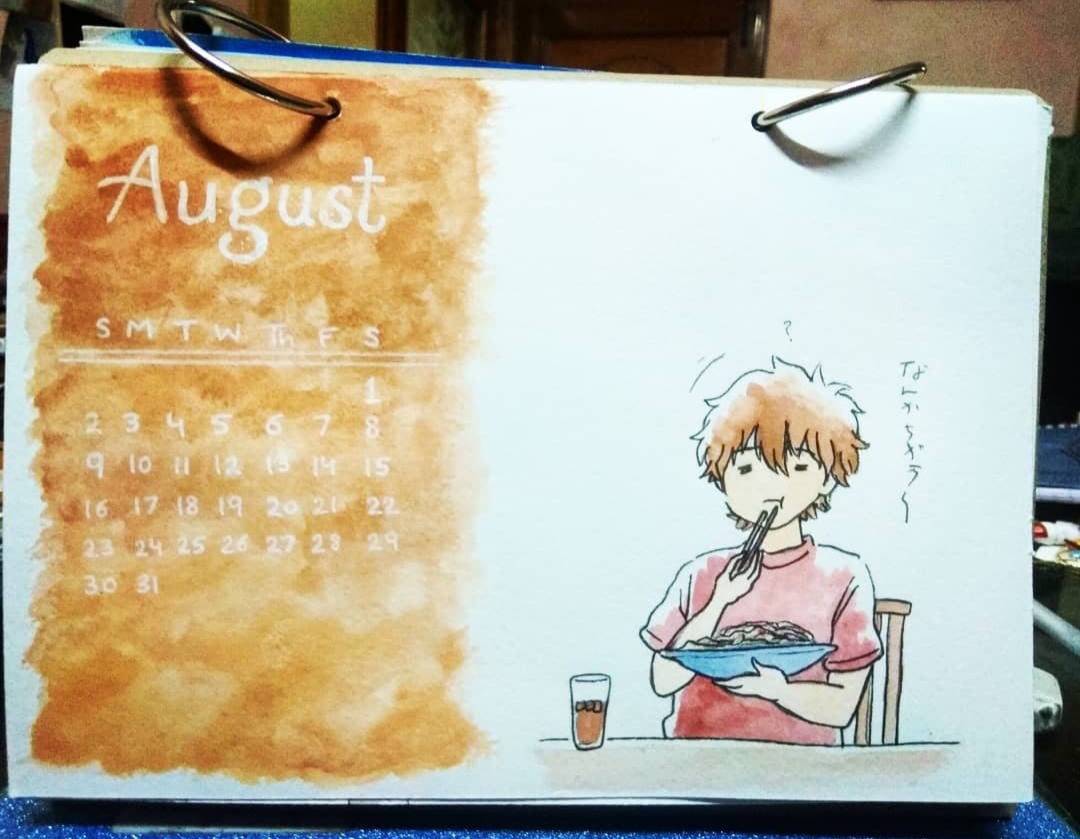 August
S M T W Th F S
1
2 3 4 5 6 7 8
9 10 11 12 13 14 15
16 17 18 19 20 21 22
23 24 25 26 27 28 29
30 31
?
なんかちがう〜